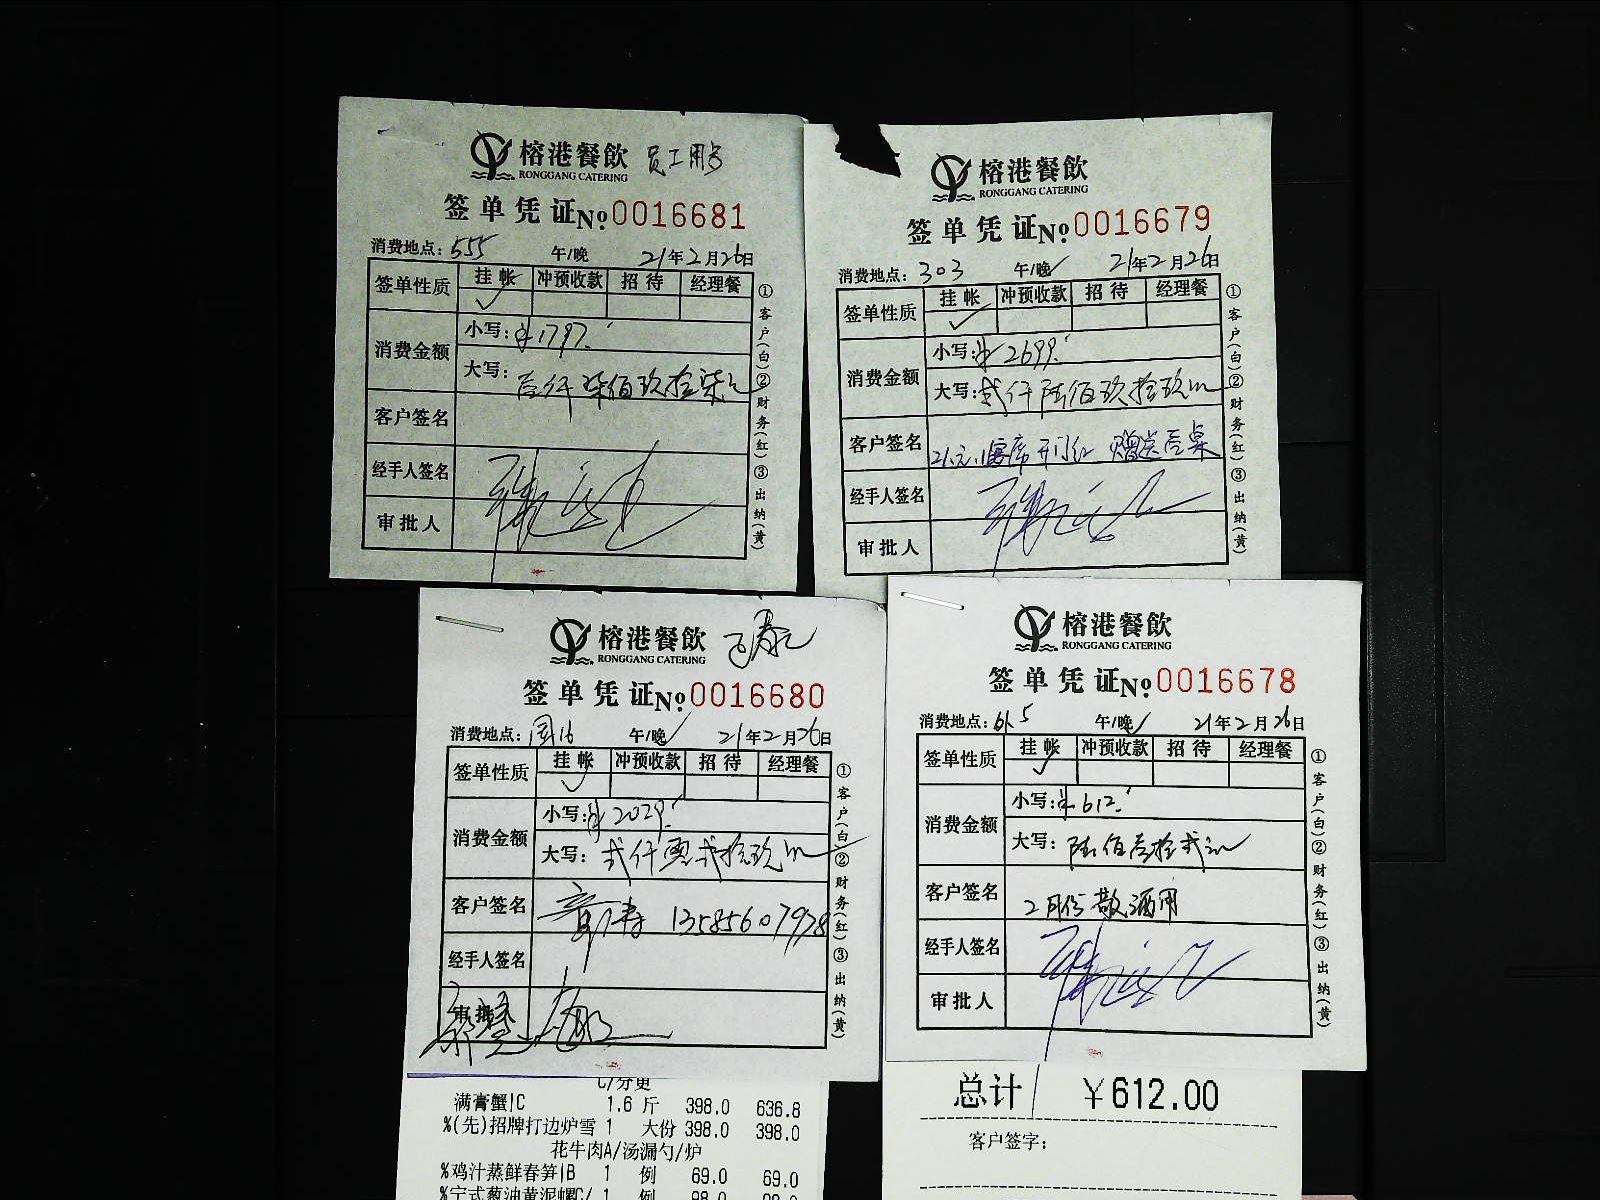 榕港餐飲 员工用歺
RONGGANG CATERING
签单凭证 No 0016681
消费地点: 555 午/晚 21年2月26日
签单性质 挂帐 冲预收款 招待 经理餐
✓
消费金额 小写: ¥1797.
大写: 壹仟柒佰玖拾柒元
客户签名
经手人签名
审批人
①客户(白)②财务(红)③出纳(黄)
榕港餐飲
RONGGANG CATERING
签单凭证 No 0016679
消费地点: 303 午/晚✓ 21年2月26日
签单性质 挂帐 冲预收款 招待 经理餐
✓
消费金额 小写: ¥2699.
大写: 贰仟陆佰玖拾玖元
客户签名 宴席开门红 赠送壹桌
经手人签名
审批人
①客户(白)②财务(红)③出纳(黄)
榕港餐飲
RONGGANG CATERING
签单凭证 No 0016680
消费地点: 16 午/晚✓ 21年2月26日
签单性质 挂帐 冲预收款 招待 经理餐
✓
消费金额 小写: ¥2029.
大写: 贰仟零贰拾玖元
客户签名 13585607938
经手人签名
审批
①客户(白)②财务(红)③出纳(黄)
榕港餐飲
RONGGANG CATERING
签单凭证 No 0016678
消费地点: 5 午/晚✓ 21年2月26日
签单性质 挂帐 冲预收款 招待 经理餐
✓
消费金额 小写: ¥612.
大写: 陆佰壹拾贰元
客户签名 2月份散酒用
经手人签名
审批人
①客户(白)②财务(红)③出纳(黄)
C/分更
满膏蟹|C 1.6 斤 398.0 636.8
%(先)招牌打边炉雪 1 大份 398.0 398.0
花牛肉A/汤漏勺/炉
%鸡汁蒸鲜春笋|B 1 例 69.0 69.0
%宁式葱油黄泥螺C/ 1 例 98.0 98.0
总计 ¥612.00
客户签字: